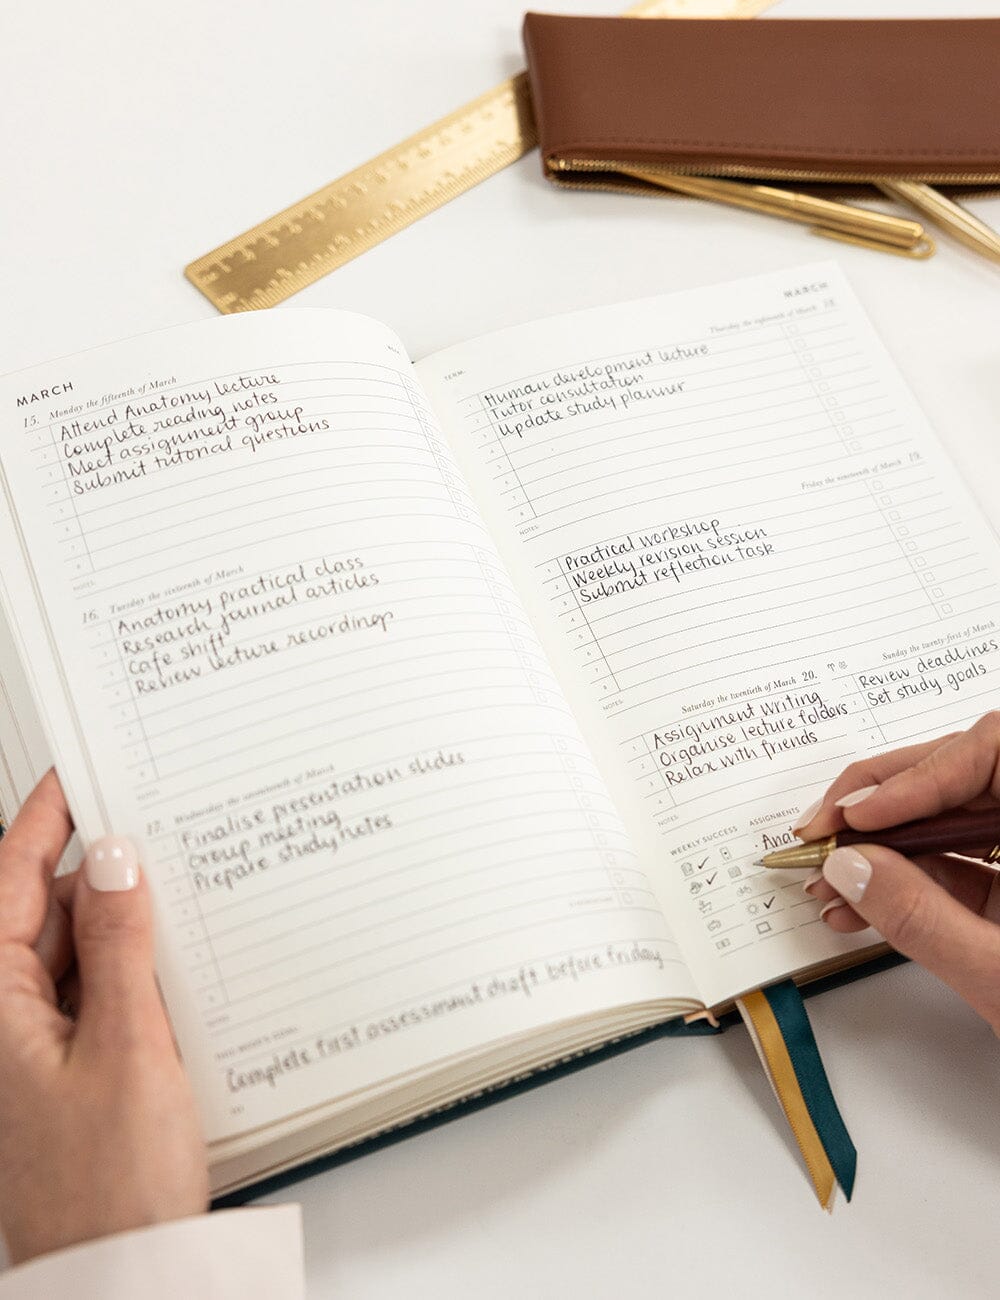 MARCH
15. Monday the fifteenth of March
1 Attend Anatomy lecture
2 Complete reading notes
3 Meet assignment group
4 Submit tutorial questions
NOTES:
16. Tuesday the sixteenth of March
Anatomy practical class
Research journal articles
Cafe shift
Review lecture recordings
NOTES:
17. Wednesday the seventeenth of March
Finalise presentation slides
Group meeting
Prepare study notes
Complete first assessment draft before friday
TERM:
MARCH
Thursday the eighteenth of March 18.
1 Human development lecture
2 Tutor consultation
3 Update study planner
NOTES:
Friday the nineteenth of March 19.
1 Practical workshop
2 Weekly revision session
3 Submit reflection task
NOTES:
Saturday the twentieth of March 20.
1 Assignment writing
2 Organise lecture folders
3 Relax with friends
4
NOTES:
Sunday the twenty-first of March
Review deadlines
Set study goals
WEEKLY SUCCESS
ASSIGNMENTS